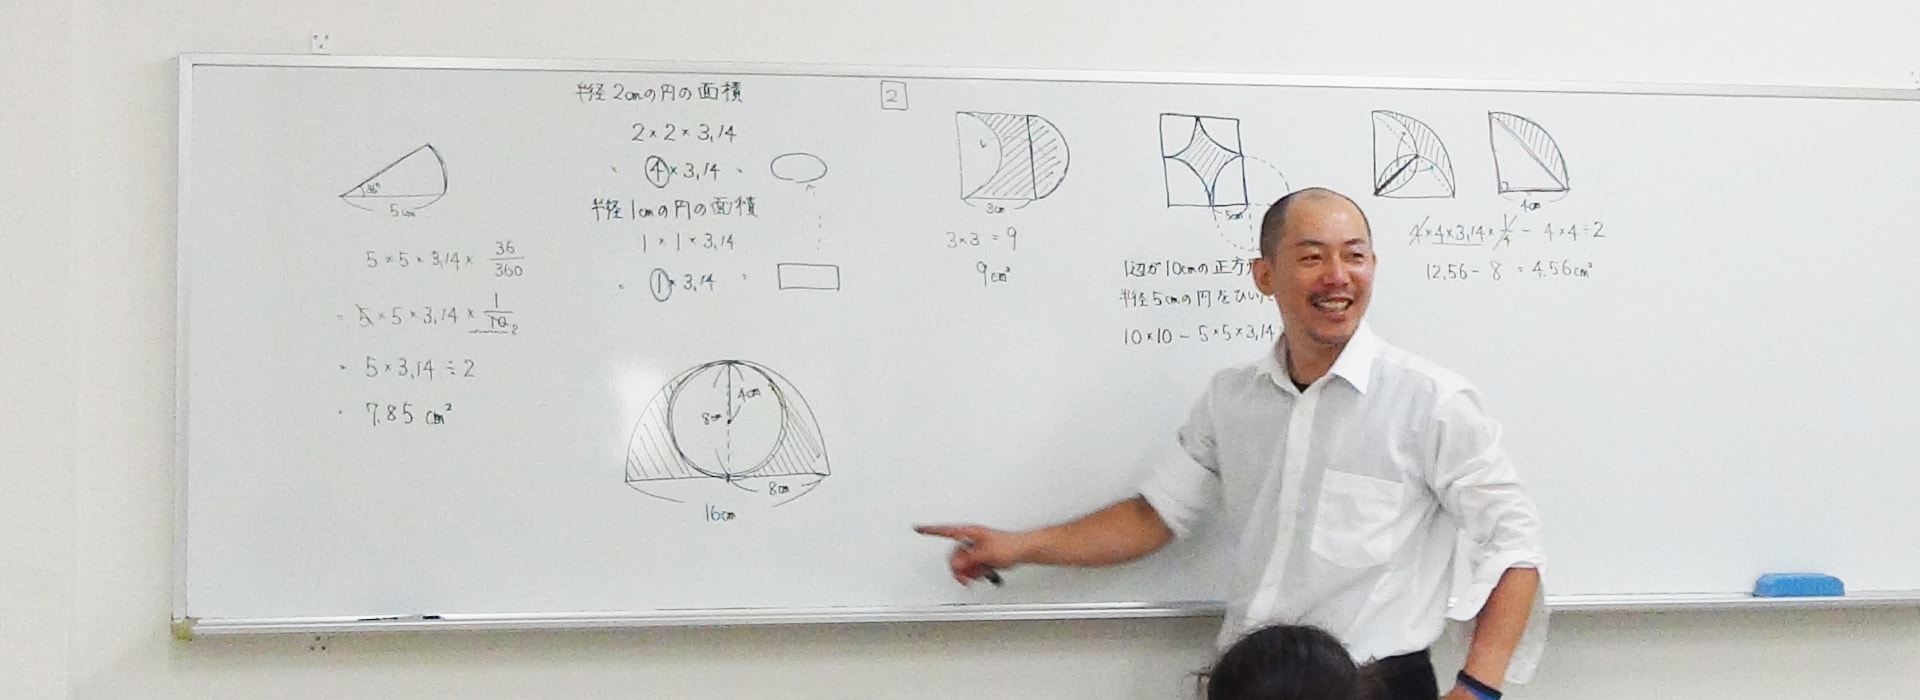 36°
5cm
5×5×3.14×36/360
=5×5×3.14×1/10 2
=5×3.14÷2
=7.85 cm²
半径2cmの円の面積
2×2×3.14
=4×3.14=
半径1cmの円の面積
1×1×3.14
=1×3.14=
4cm
8cm
8cm
16cm
2
3cm
3×3=9
9cm²
5cm
1辺が10cmの正方
半径5cmの円をひい
10×10-5×5×3.14
4cm
4×4×3.14×1/4-4×4÷2
12.56-8=4.56cm²